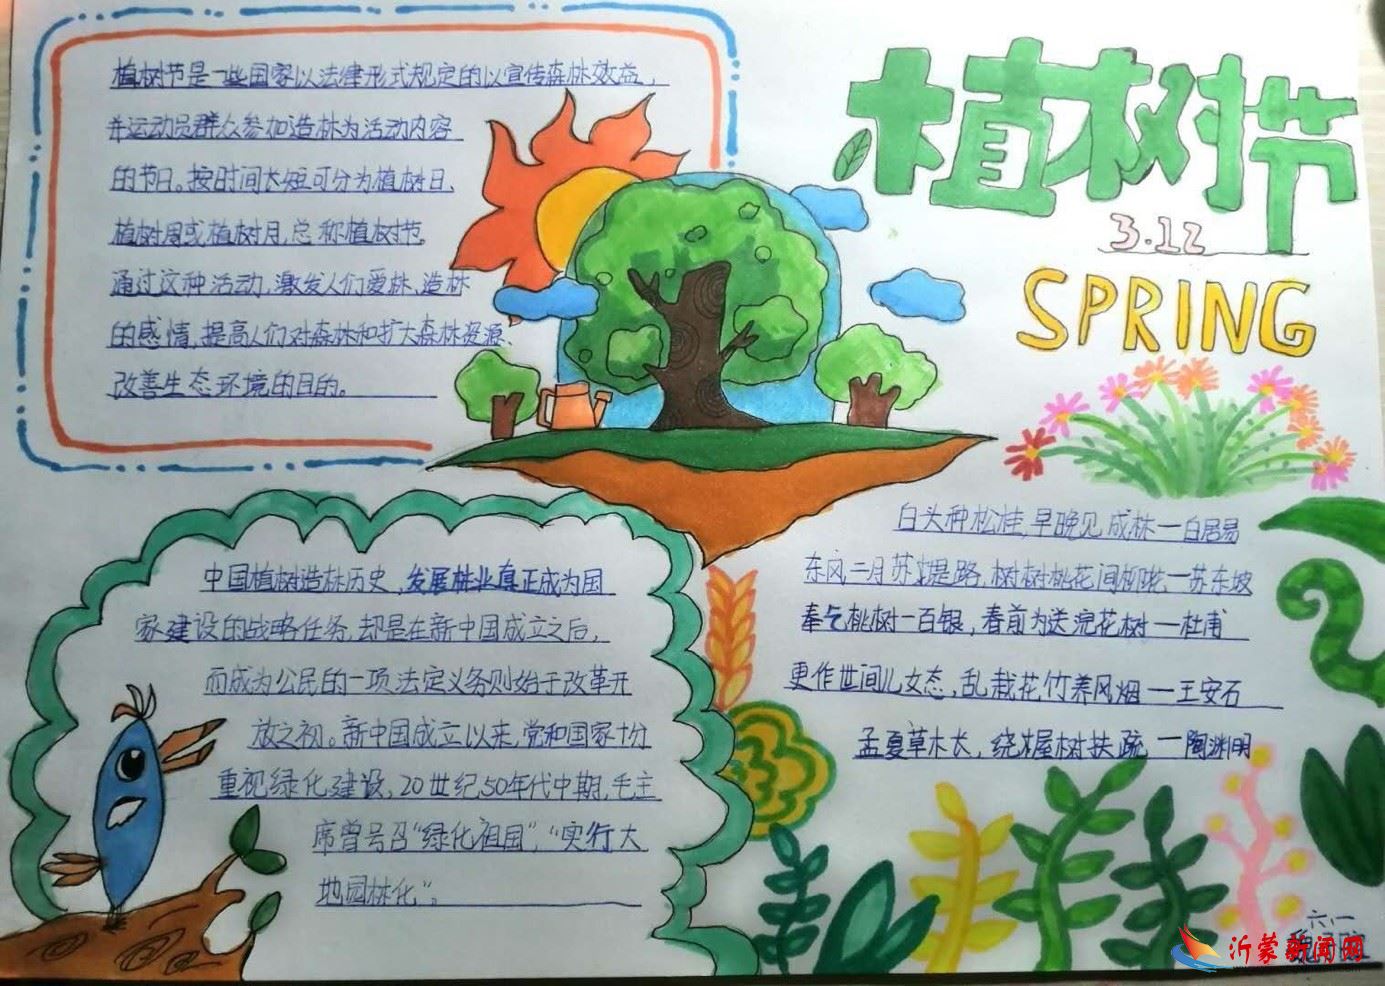 植树节
3.12
SPRING
植树节是一些国家以法律形式规定的以宣传森林效益，
并运动员群众参加造林为活动内容
的节日。按时间长短可分为植树日、
植树周或植树月，总称植树节。
通过这种活动，激发人们爱林、造林
的感情，提高人们对森林和扩大森林资源、
改善生态环境的目的。
中国植树造林历史，发展林业真正成为国
家建设的战略任务，却是在新中国成立之后，
而成为公民的一项法定义务则始于改革开
放之初。新中国成立以来，党和国家十分
重视绿化建设，20世纪50年代中期，毛主
席曾号召“绿化祖国”，“实行大
地园林化”。
白头种松桂，早晚见成林—白居易
东风二月苏堤路，树树桃花间柳花—苏东坡
奉乞桃树一百银，春前为送浣花树—杜甫
更作世间儿女态，乱栽花竹养风烟—王安石
孟夏草木长，绕屋树扶疏—陶渊明
六.一
沂蒙新闻网